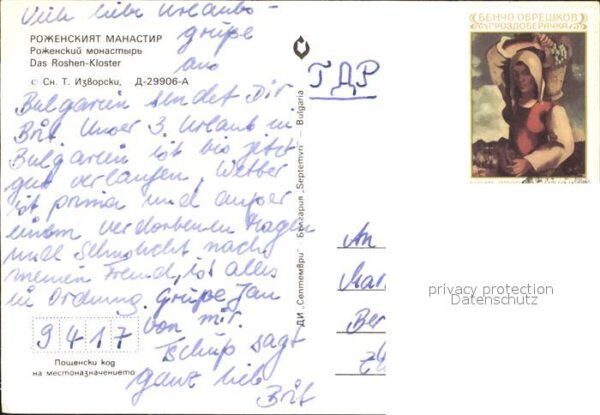 Viele liebe Urlaubs-
grüße
aus
РОЖЕНСКИЯТ МАНАСТИР
Роженский монастырь
Das Roshen-Kloster
© Сн. Т. Изворски, Д-29906-А
Bulgarien sendet Dir
Brit. Unser 3. Urlaub in
Bulgarien ist bis jetzt
gut verlaufen. Wetter
ist prima und außer
einem verdorbenen Magen
und Sehnsucht nach
meinem Freund, ist alles
in Ordnung. Grüße Jan
von mir.
Tschüß sagt
ganz lieb
Brit
9 4 1 7
Пощенски код
на местоназначението
ДИ „Септември" България „Septemvri" — Bulgaria
ГДР
БЕНЧО ОБРЕШКОВ
ГРОЗДОБЕРАЧКА
An
Mar
Ber
privacy protection
Datenschutz